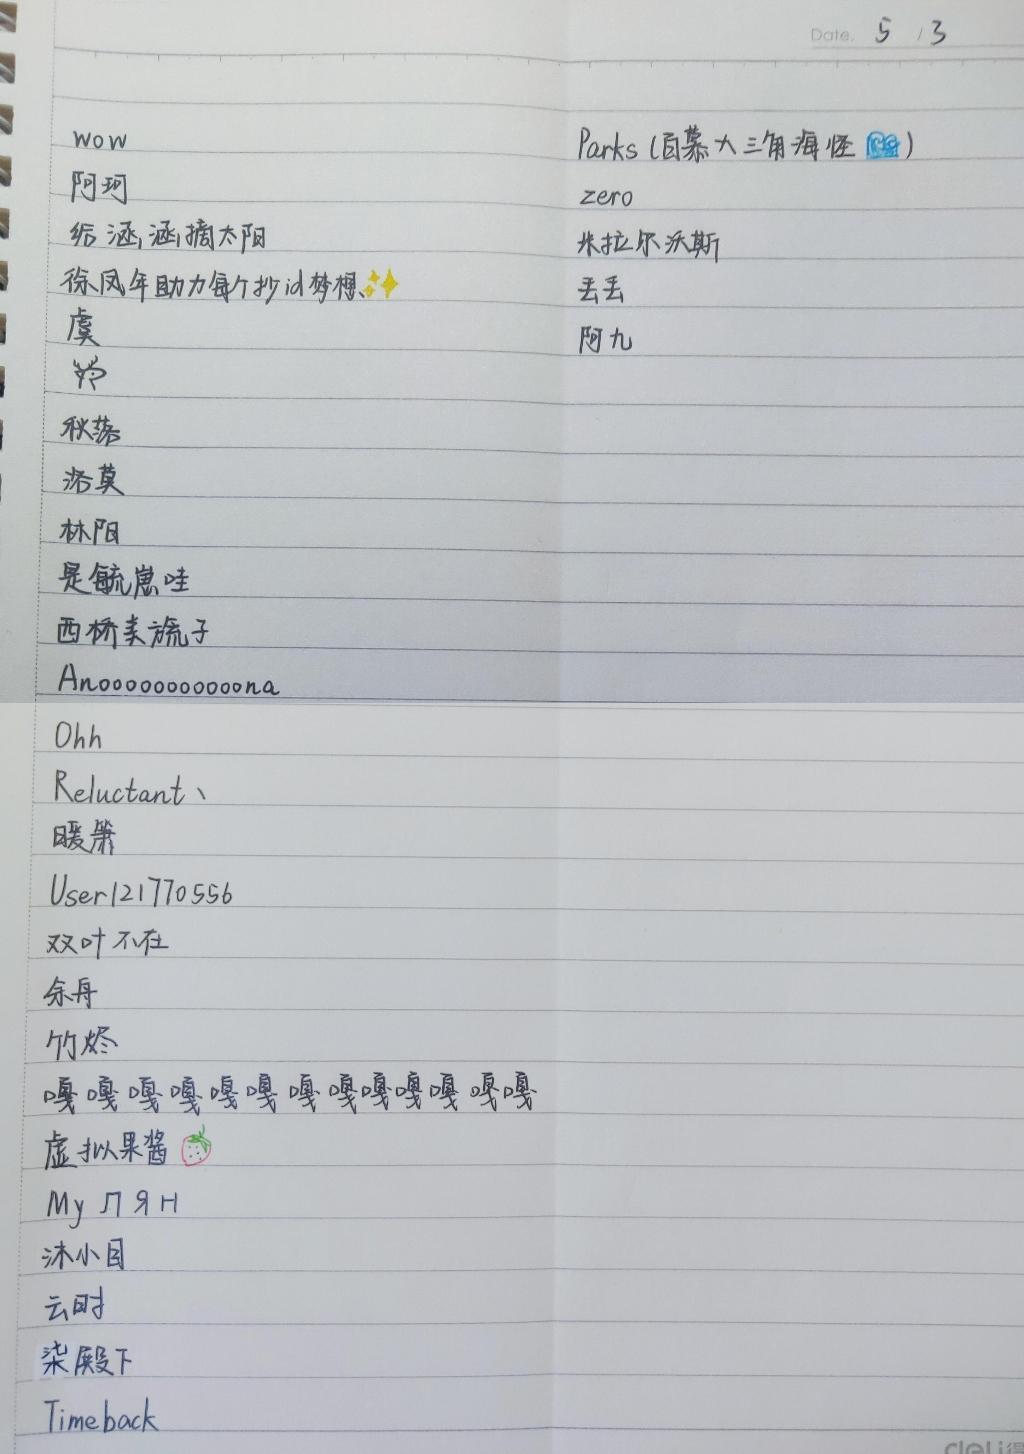 Date. 5 / 3
wow
阿珂
给涵涵摘太阳
徐凤年助力每个抄id梦想
虞
秋落
洛莫
林阳
是毓崽哇
西桥美旒子
Anooooooooooona
Ohh
Reluctant、
暖箫
User121770556
双叶不在
余舟
竹烬
嘎嘎嘎嘎嘎嘎嘎嘎嘎嘎嘎嘎嘎
虚拟果酱
My ЛЯН
沐小目
云时
柒殿下
Timeback
Parks（百慕大三角海怪）
zero
米拉尔沃斯
丢丢
阿九
deli得